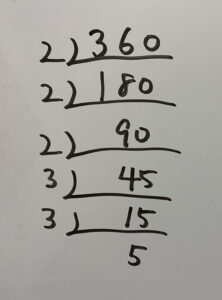 2)360
2)180
2)90
3)45
3)15
5